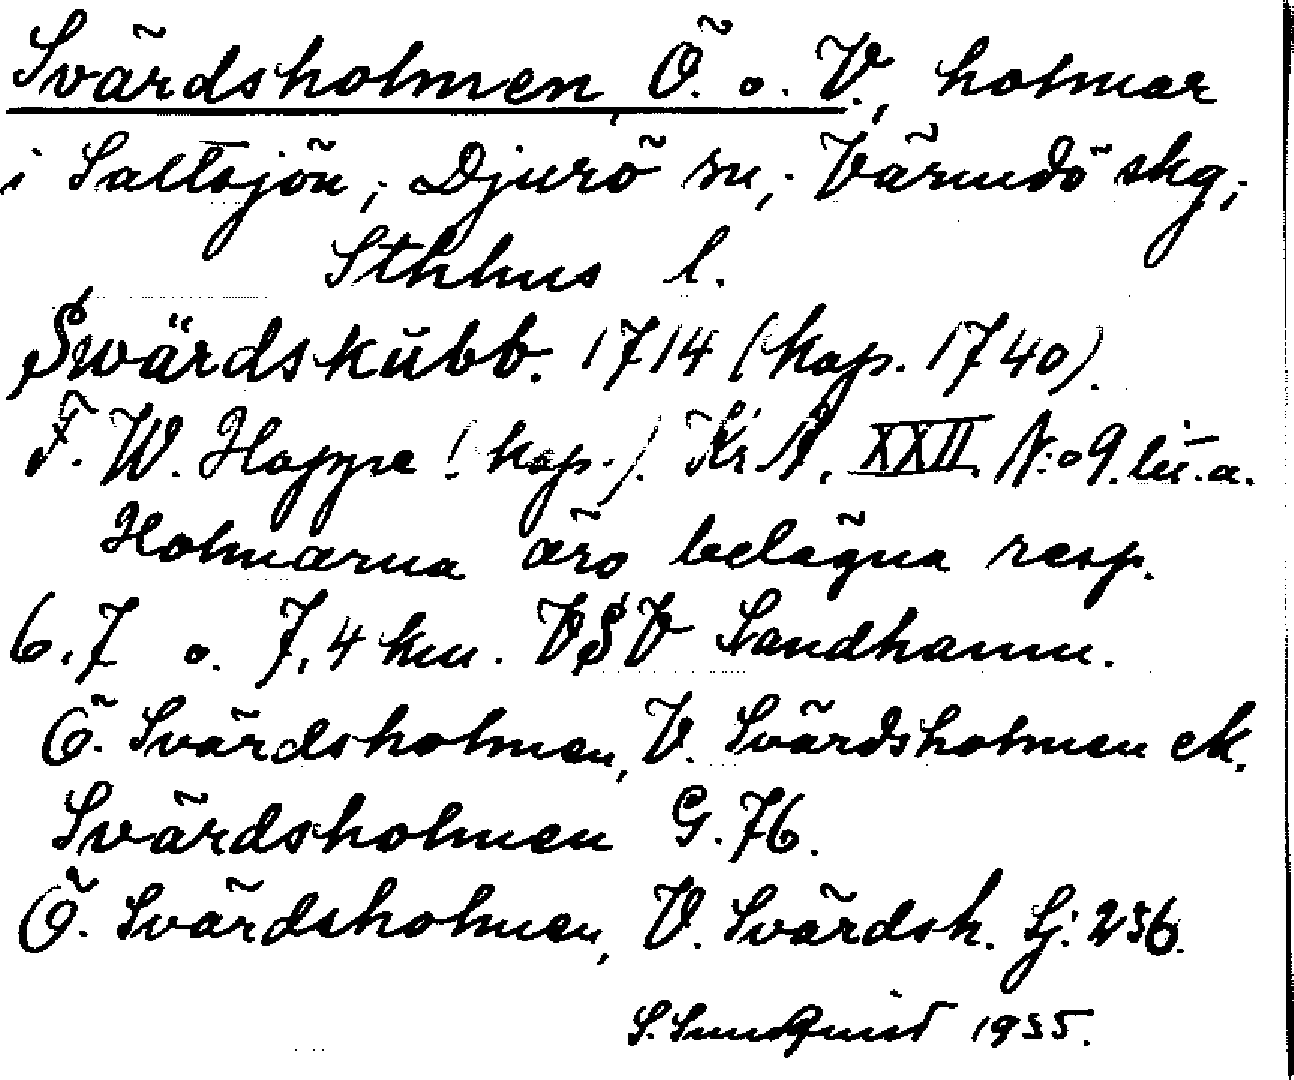 Svärdsholmen, Ö. o. V., holmar
i Saltsjön; Djurö sn; Värmdö skg;
Sthlms l.
Swärdskübb. 1714 (kop. 1740).
F. W. Hoppe (kop.). Kr A. XXII N:o 9. lit. a.
Holmarna äro belägna resp.
6,7 o. 7,4 km. VSV Sandhamn.
Ö. Svärdsholmen, V. Svärdsholmen ek.
Svärdsholmen G. 76.
Ö. Svärdsholmen, V. Svärdsh. Sj. 236.
S. Sundquist 1935.